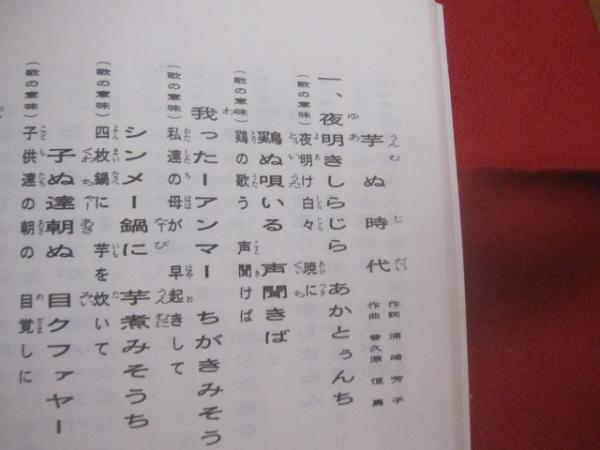 芋ぬ時代
作詞 浦崎芳子
作曲 普久原恒勇
一、夜明きしらじら あかとぅんち
(歌の意味) 夜明け白々 暁に
鶏ぬ唄いる 声聞きば
(歌の意味) 鶏の歌う 声聞けば
我ったーアンマー ちがきみそう
(歌の意味) 私達の母が 早起きして
シンメー鍋に 芋煮みそうち
(歌の意味) 四枚鍋に 芋を炊いて
子ぬ達朝ぬ 目クファヤー
(歌の意味) 子供達の朝の 目覚しに